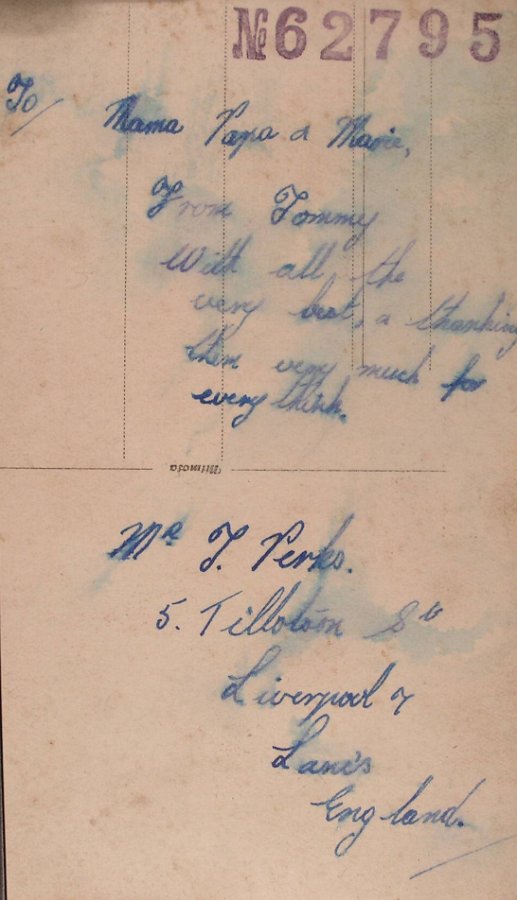 №62795
To/ Mama Papa & Marie,
From Tommy
With all the
very best, & thanking
them very much for
every think.
Mimosa
Mr T. Perks.
5. Tillotson St
Liverpool 7
Lancs
England.